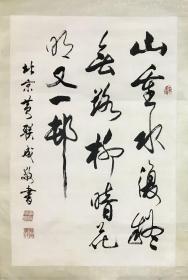 山重水復疑
無路柳暗花
明又一邨
北京黄联成敬书